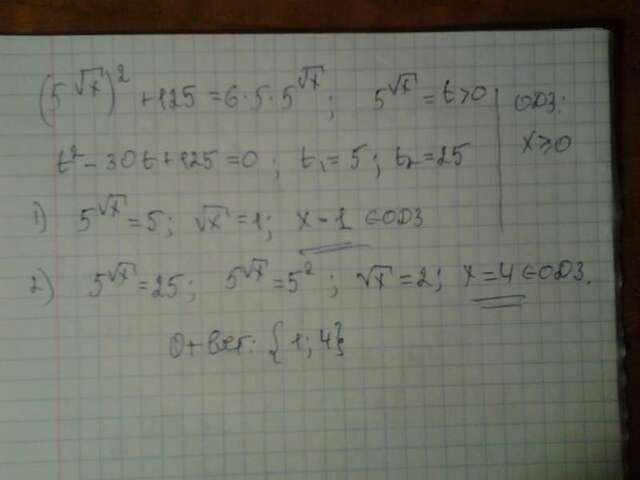 (5^√x)² + 125 = 6·5·5^√x; 5^√x = t > 0 | ОДЗ:
t² - 30t + 125 = 0; t₁ = 5; t₂ = 25 | x ≥ 0
1) 5^√x = 5; √x = 1; x - 1 ∈ ОДЗ
2) 5^√x = 25; 5^√x = 5²; √x = 2; x = 4 ∈ ОДЗ.
Ответ: {1; 4}